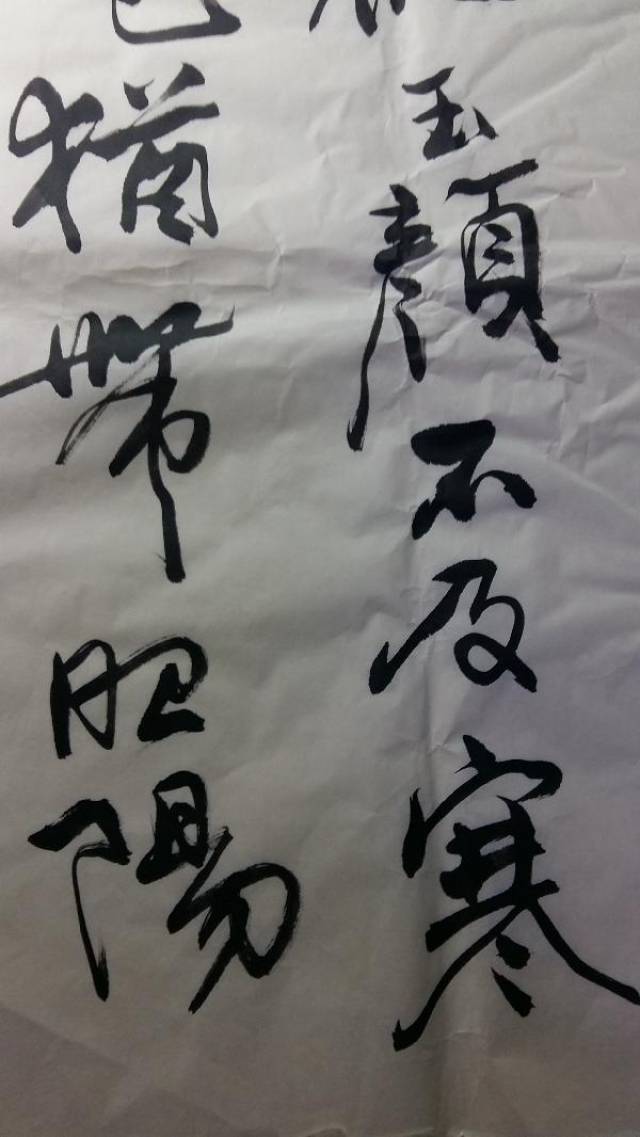 玉顏不及寒
色猶帶昭陽